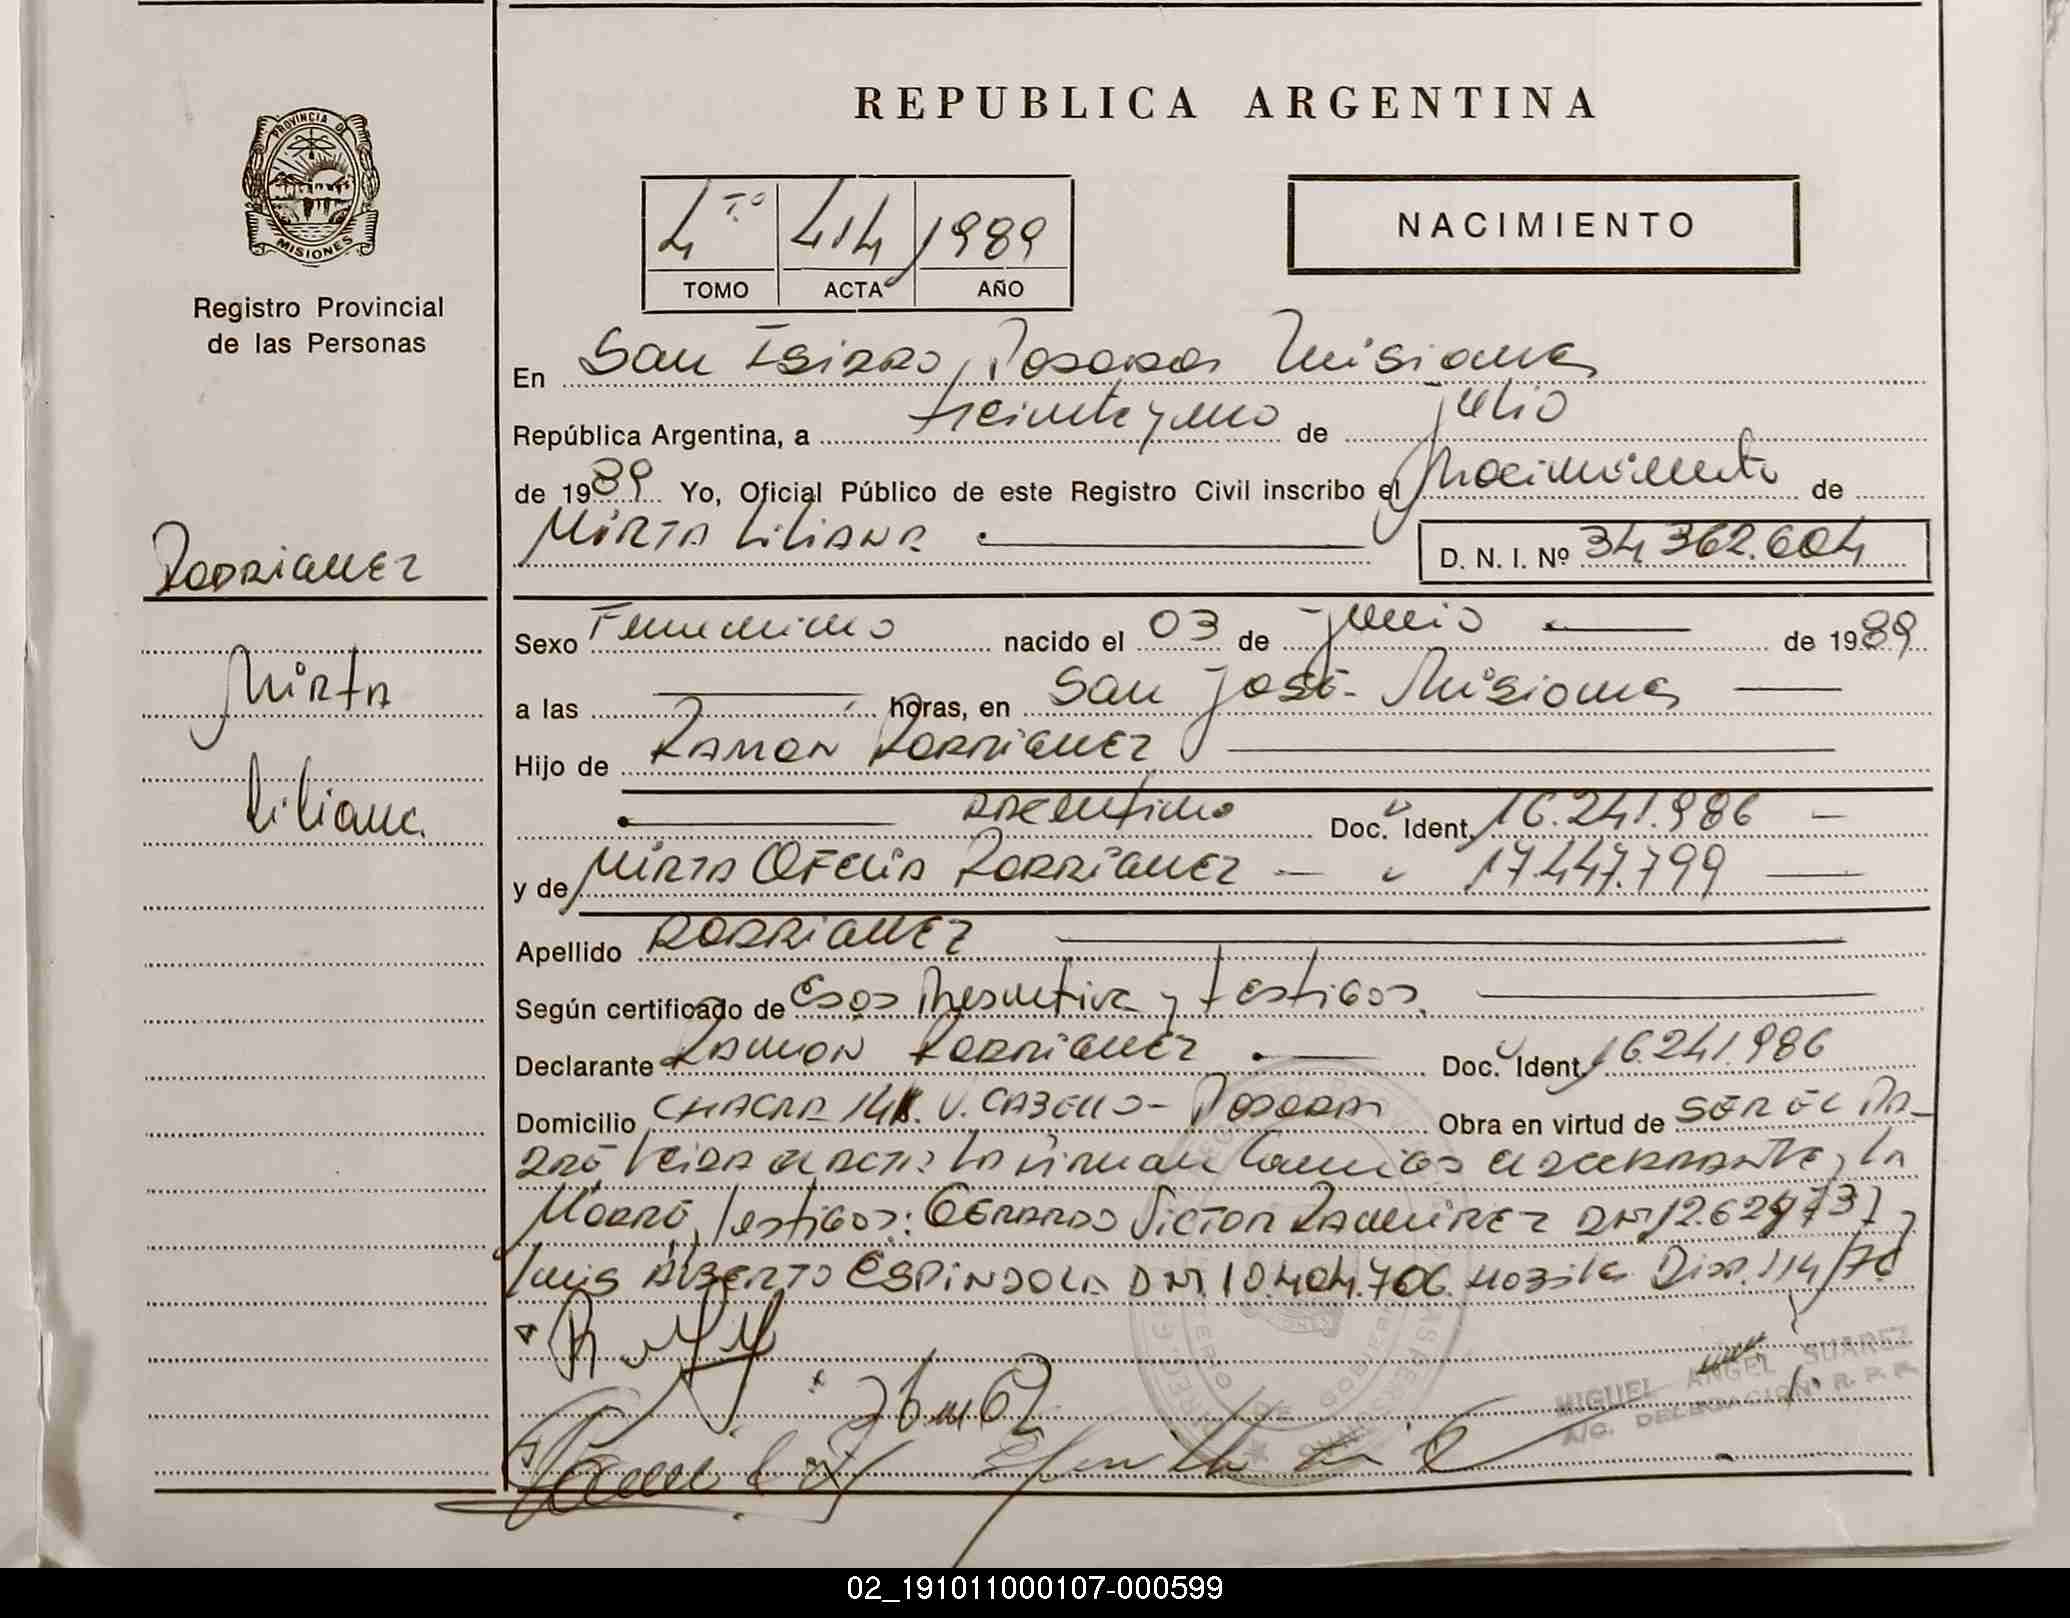 REPUBLICA ARGENTINA
PROVINCIA DE
MISIONES
Registro Provincial
de las Personas
4 T.º 414 1989
TOMO ACTA AÑO
NACIMIENTO
En San Isidro, Posadas Misiones
República Argentina, a treinta y uno de julio
de 1989 Yo, Oficial Público de este Registro Civil inscribo el nacimiento de
MIRTA LILIANA
D. N. I. Nº 34 362.604
RODRIGUEZ
Mirta
Liliana
Sexo Femenino nacido el 03 de junio de 1989
a las horas, en San José - Misiones
Hijo de RAMON RODRIGUEZ
argentino Doc. Ident. 16.241.986
y de MIRTA OFELIA RODRIGUEZ 17.447.799
Apellido RODRIGUEZ
Según certificado de y testigos.
Declarante RAMON RODRIGUEZ Doc. Ident. 16.241.986
Domicilio CHACRA - Posadas Obra en virtud de SER EL PA-
DRE Leida el acta la firman conmigo el declarante, la
Madre, testigos: GERARDO VICTOR RAMIREZ DNI
Luis ALBERTO ESPINDOLA DNI. 10.404.706. Disp. 114/
MIGUEL ANGEL SUAREZ
A/C. DELEGACION R. P. P.
02_191011000107-000599